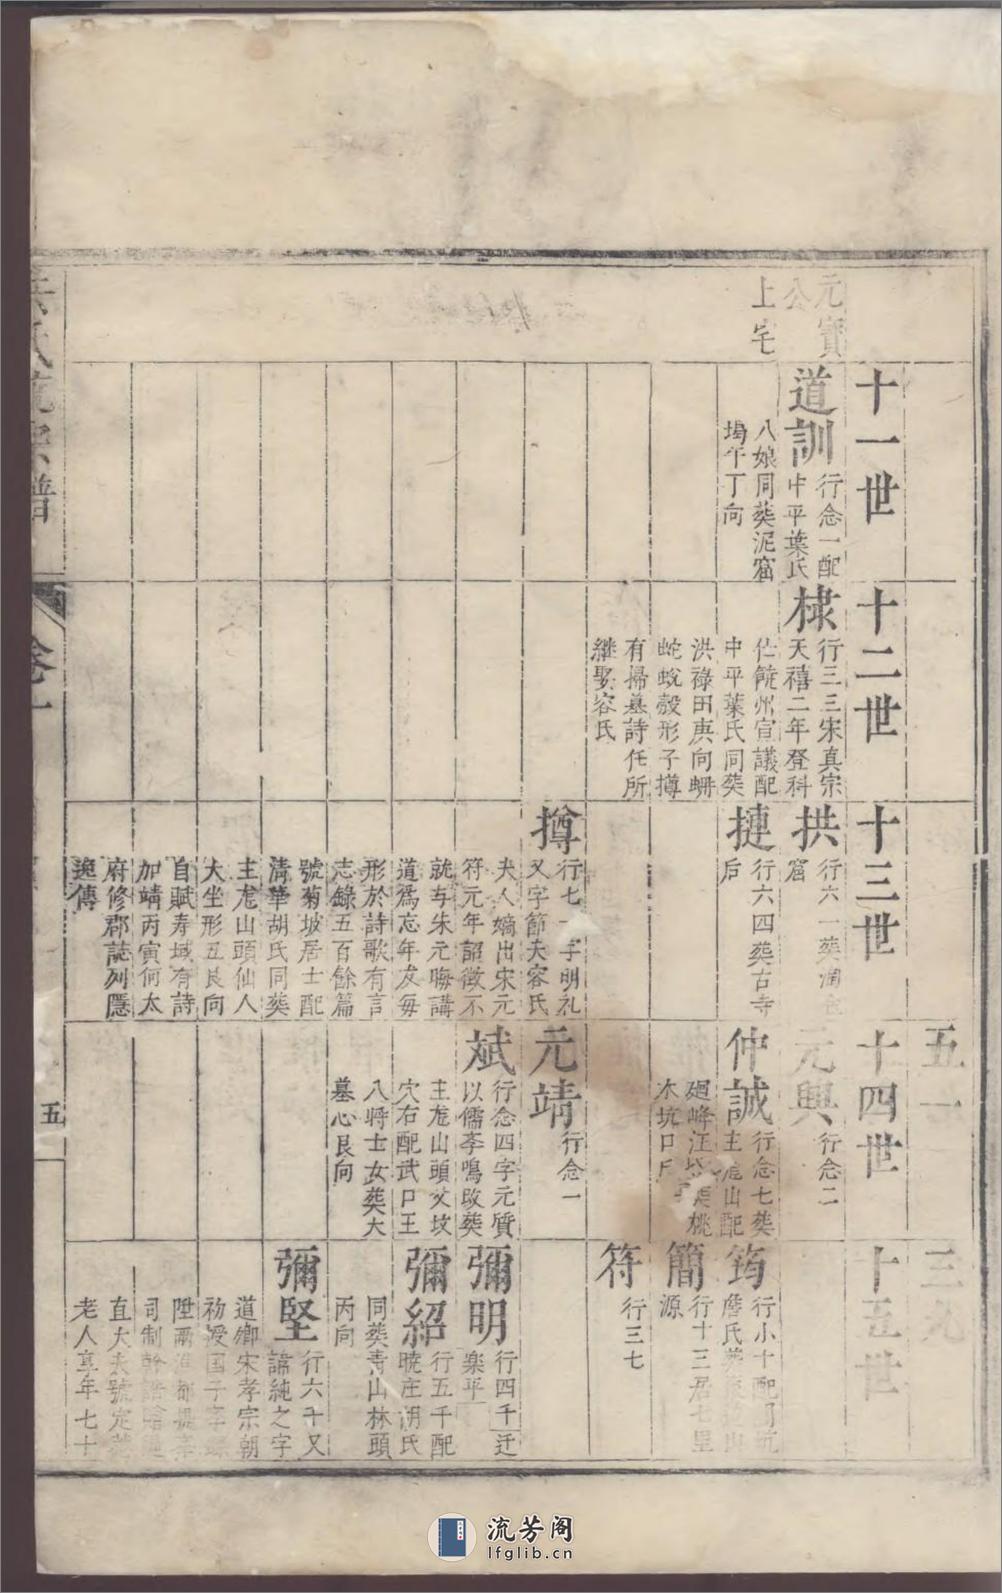 元寶
公
上宅
十一世
道訓
行念一配
中平葉氏
八娘同葬泥窟
塢午丁向
十二世
棣
行三三宋真宗
天禧二年登科
仕饒州宣議配
中平葉氏同葬
洪祿田庚向蚺
蛇蛻殼形子摶
有掃墓詩任所
継娶容氏
十三世
拱
行六一葬
窟
摙
行六四葬古寺
后
摶
行七一字明礼
又字節夫容氏
夫人嫡出宋元
符元年詔徵不
就与朱元晦講
道爲忘年友每
形於詩歌有言
志錄五百餘篇
號菊坡居士配
清華胡氏同葬
主尨山頭仙人
大坐形丑艮向
自賦寿域有詩
加靖丙寅何太
府修郡誌列隱
逸傳
五一
十四世
元興
行念二
仲誠
行念七葬
主尨山配
廻峰江氏葬桃
木坑口
元靖
行念一
斌
行念四字元質
以儒李鳴啟葬
主尨山頭父坟
穴右配武口王
八将士女葬大
墓心艮向
三九
十五世
筠
行小十配
詹氏葬
簡
行十三居七里
源
符
行三七
彌明
行四千迁
楽平
彌紹
行五千配
暁庄胡氏
同葬青山林頭
丙向
彌堅
行六十又
諱純之字
道鄉宋孝宗朝
初授国子
陞兩淮都
司制幹
直大夫號定
老人享年七十
卷一
五
流芳阁
lfglib.cn